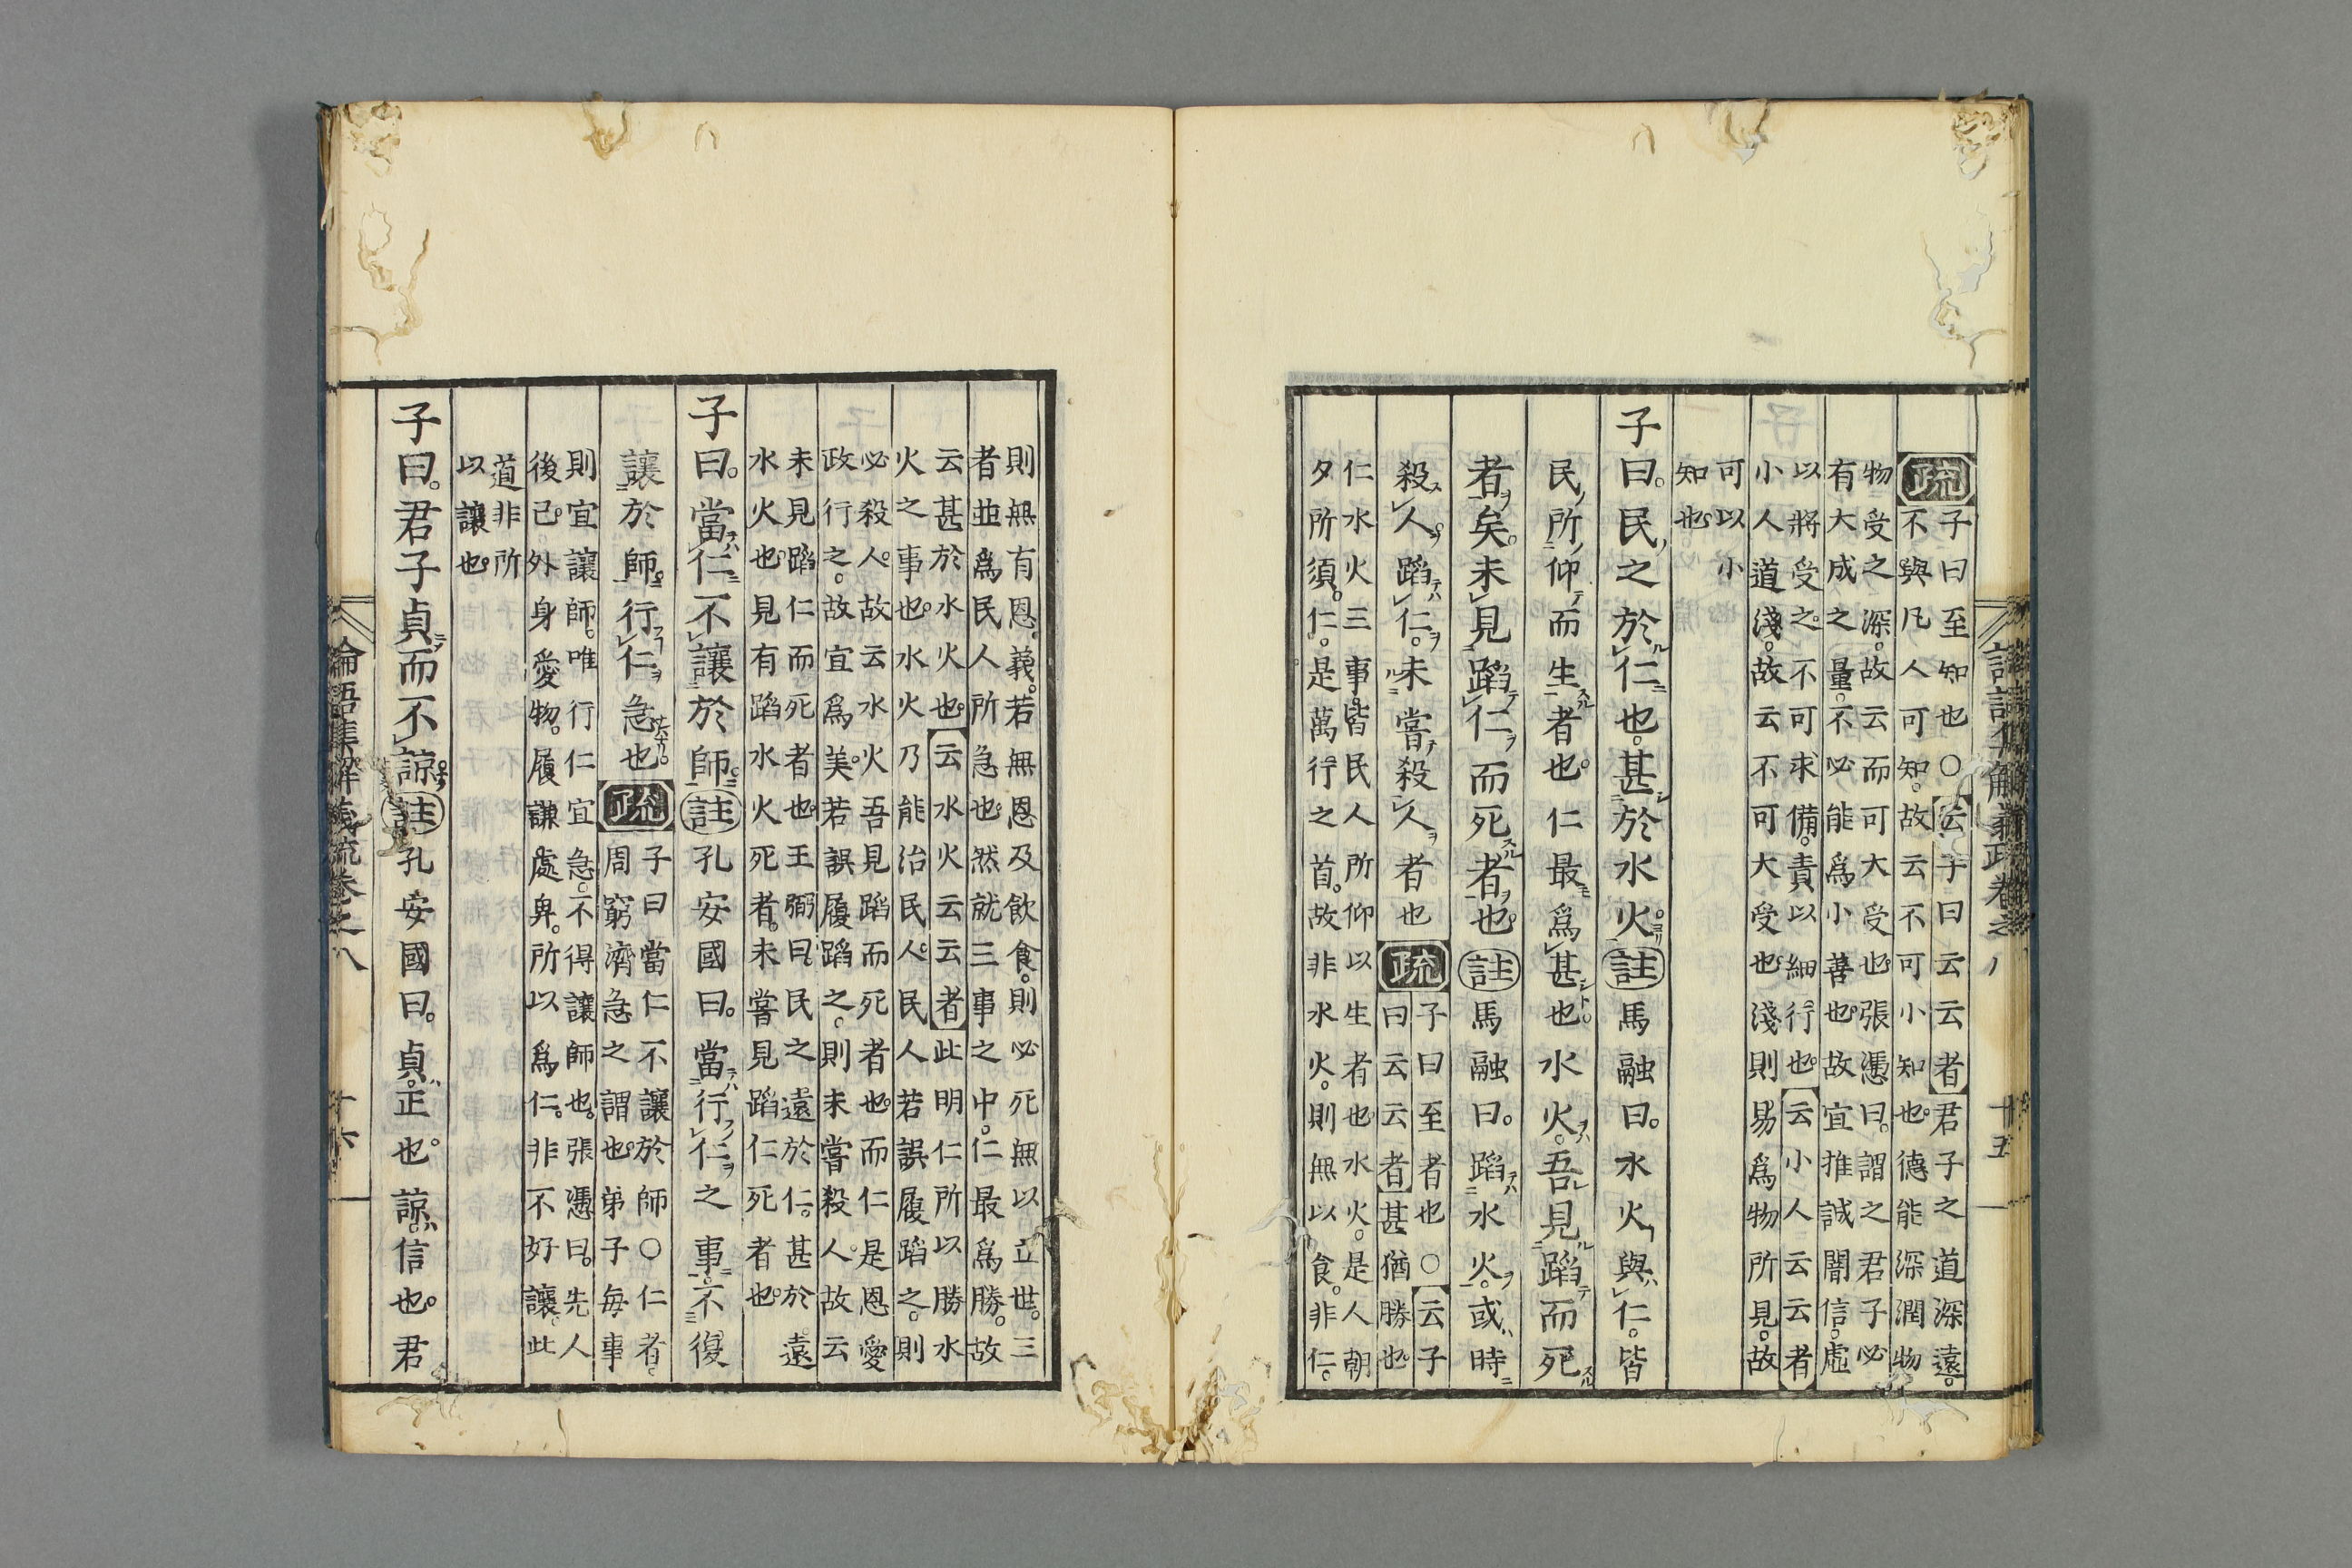 疏子曰至知也○云子曰云云者君子之道深遠。
不與凡人可知。故云不可小知也。德能深潤物
物受之深。故云而可大受也。張憑曰。謂之君子必
有大成之量。不必能爲小善也。故宜推誠闇信。虛
以將受之。不可求備。責以細行也。云小人云云者
小人道淺。故云不可大受也。淺則易爲物所見。故
可以小
知也。
子曰。民之於仁也。甚於水火。註馬融曰。水火與仁。皆
民所仰而生者也。仁最爲甚也。水火。吾見蹈而死
者矣。未見蹈仁而死者也。註馬融曰。蹈水火。或時
殺人。蹈仁。未嘗殺人者也疏子曰至者也○云子
曰云云者甚猶勝也。
仁水火三事。皆民人所仰以生者也。水火。是人朝
夕所須。仁。是萬行之首。故非水火。則無以食。非仁。
則無有恩義。若無恩及飲食。則必死無以立世。三
者並爲民人所急也。然就三事之中。仁最爲勝。故
云甚於水火也。云水火云云者此明仁所以勝水
火之事也。水火乃能治民人。民人若誤履蹈之。則
必殺人。故云水火吾見蹈而死者也。而仁是恩愛
政行之。故宜爲美。若誤履蹈之。則未嘗殺人。故云
未見蹈仁而死者也。王弼曰。民之遠於仁。甚於遠
水火也。見有蹈水火死者。未嘗見蹈仁死者也。
子曰。當仁不讓於師。註孔安國曰。當行仁之事。不復
讓於師。行仁急也。疏子曰當仁不讓於師○仁者。
周窮濟急之謂也。弟子每事
則宜讓師。唯行仁宜急。不得讓師也。張憑曰。先人
後己。外身愛物。履謙處卑。所以爲仁。非不好讓。此
道非所
以讓也。
子曰。君子貞而不諒。註孔安國曰。貞。正也。諒。信也。君
論語集解義疏卷之八
十六